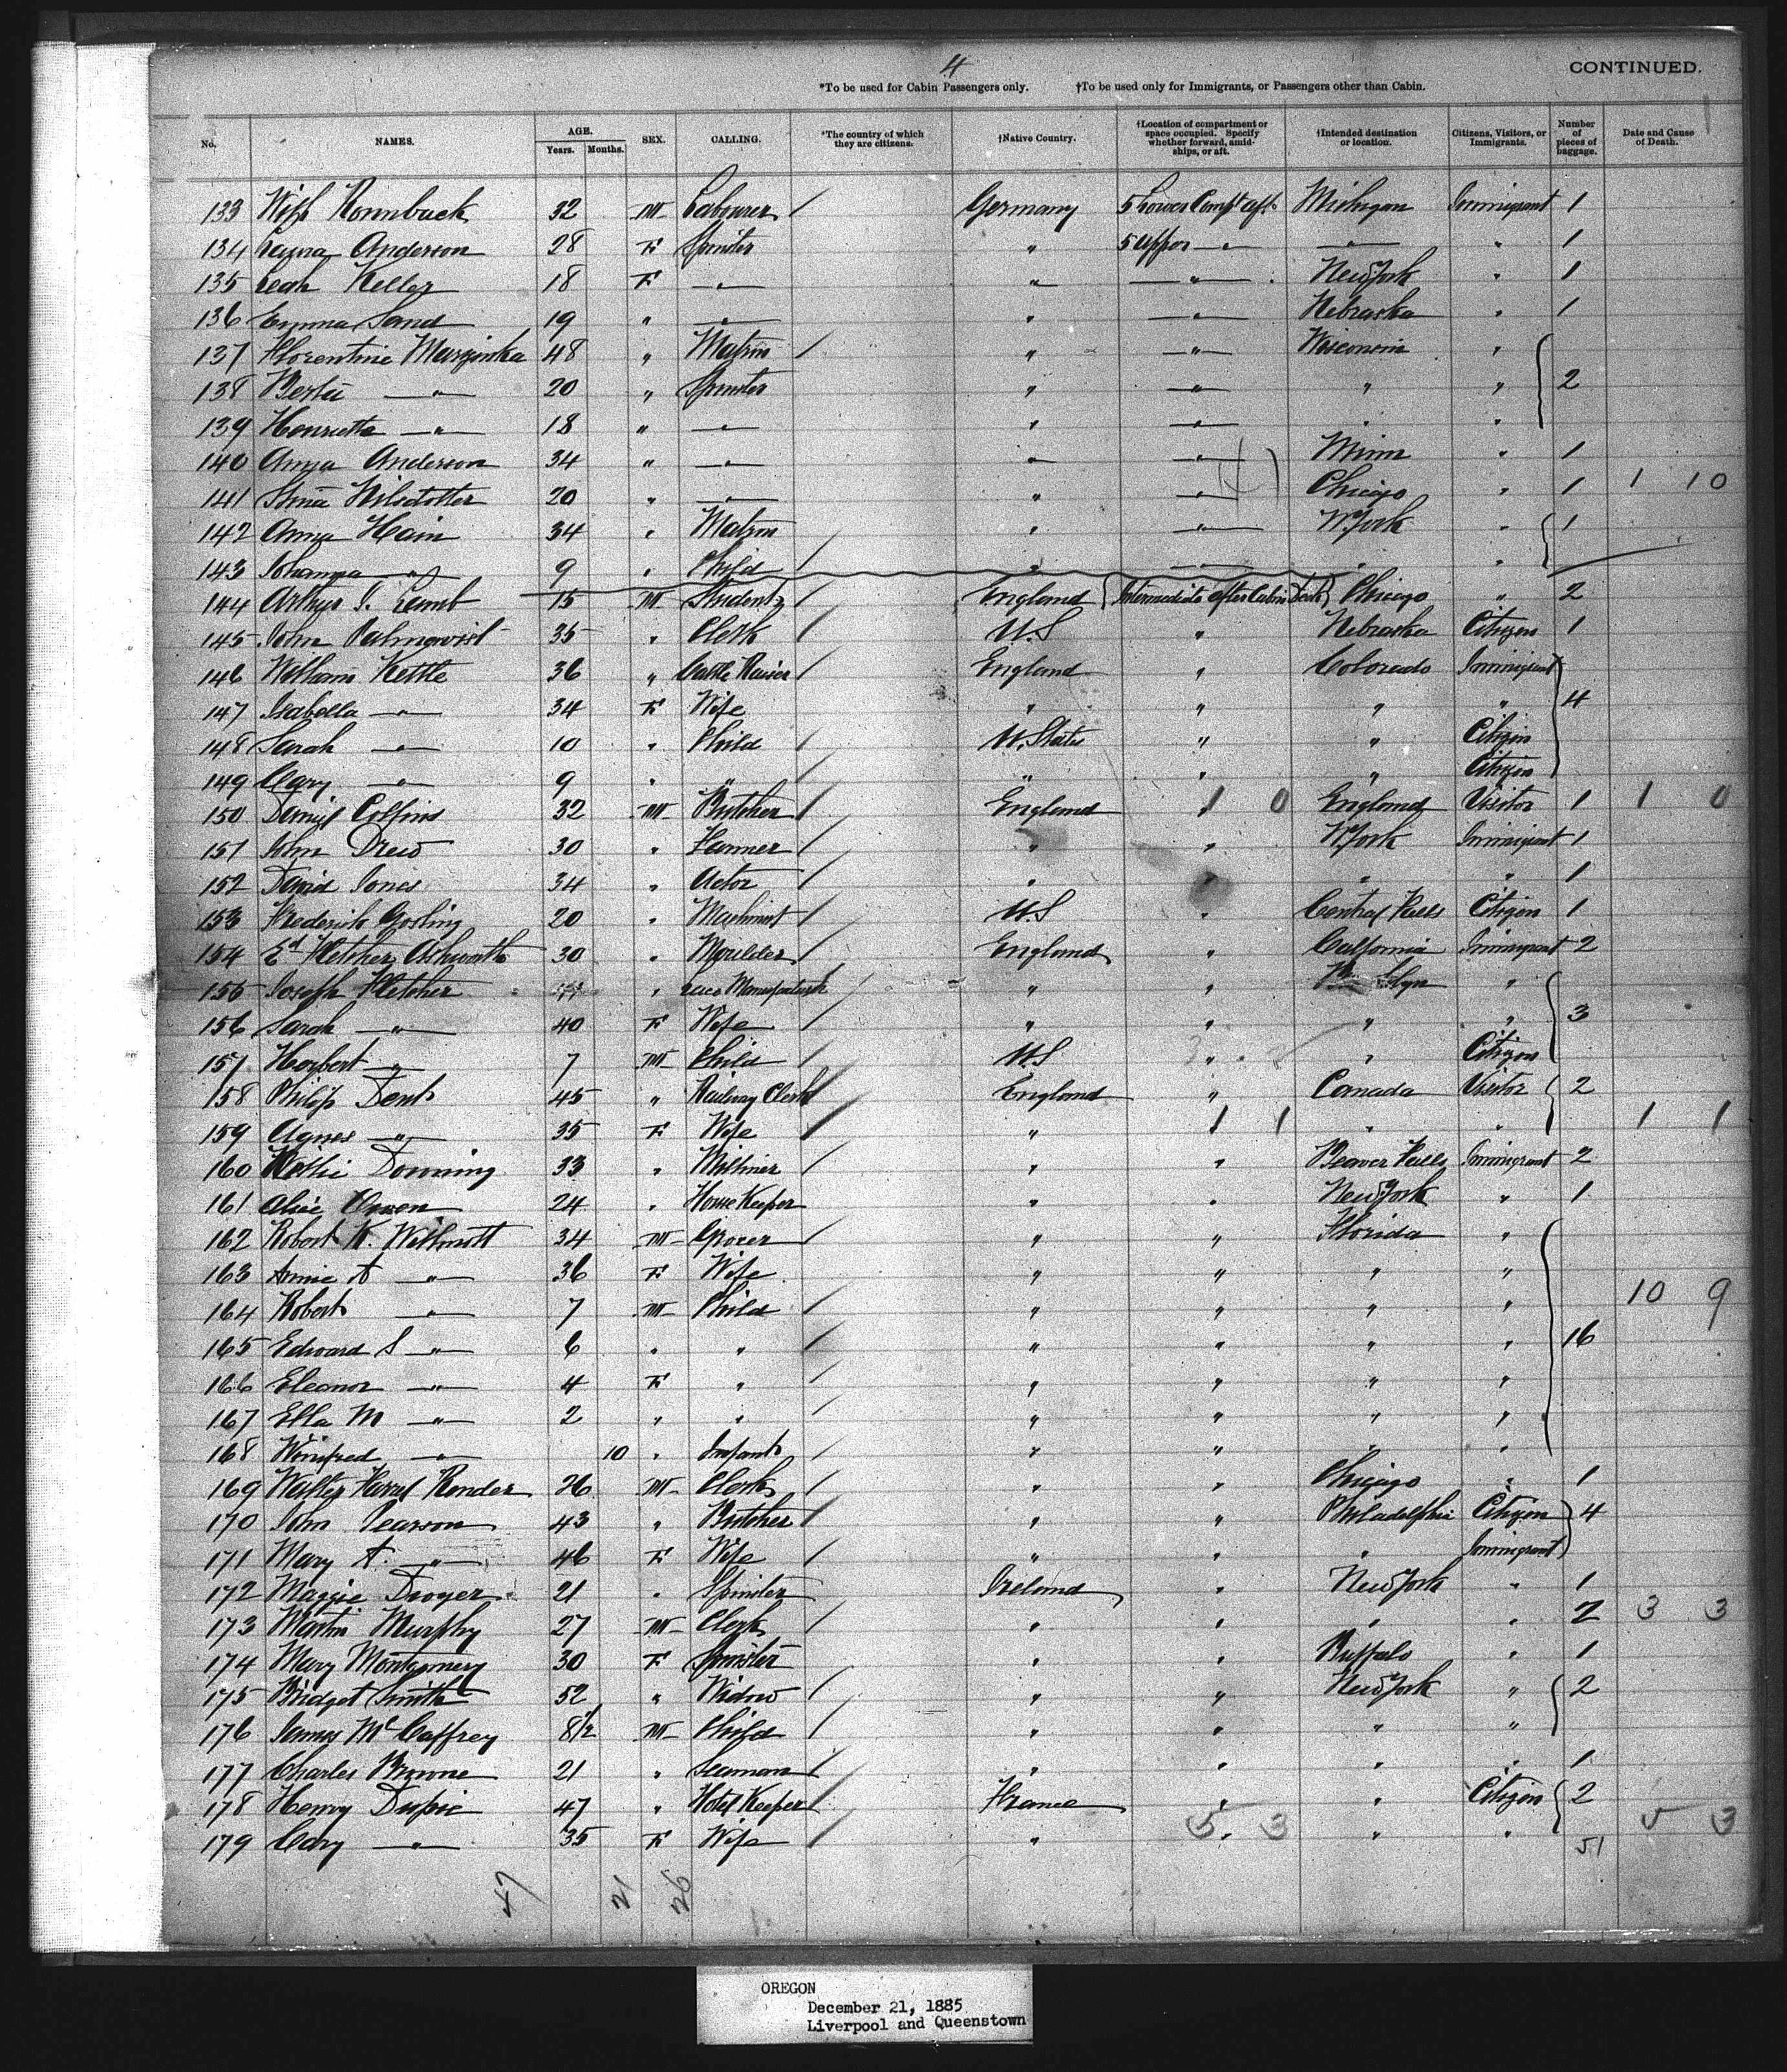 4
CONTINUED.
*To be used for Cabin Passengers only. †To be used only for Immigrants, or Passengers other than Cabin.
No. NAMES. AGE. Years. Months. SEX. CALLING. *The country of which they are citizens. †Native Country. †Location of compartment or space occupied. Specify whether forward, amidships, or aft. †Intended destination or location. Citizens, Visitors, or Immigrants. Number of pieces of baggage. Date and Cause of Death.
133 32 M Labourer Germany 5 Lower Compt aft Michigan Immigrant 1
134 Anderson 28 F Spinster " 5 Upper " " " 1
135 Leah Keller 18 F " " " New York " 1
136 Emma Sand 19 " " " " Nebraska " 1
137 Florentine 48 " Matron " " Wisconsin "
138 " 20 " Spinster " " " " 2
139 Henrietta " 18 " " " " " "
140 Anna Anderson 34 " " " " Minn " 1
141 Nilsdotter 20 " " " " Chicago " 1 1 10
142 Anna Hain 34 " Matron " " N York " 1
143 Johanna " 9 " Child " " " "
144 Arthur Lamb 15 M Student England Intermediate after Cabin Deck Chicago " 2
145 John Palmqvist 35 " Clerk U.S " Nebraska Citizen 1
146 William Kettle 36 " Cattle Raiser England " Colorado Immigrant
147 Isabella " 34 F Wife " " " " 4
148 Sarah " 10 " Child U. States " " Citizen
149 " 9 " " " " " Citizen
150 Collins 32 M Butcher England " 1 0 England Visitor 1 1 0
151 John Drew 30 " Farmer " " N York Immigrant 1
152 David Jones 34 " Actor " " " " 1
153 Frederick Gosling 20 " Machinist U.S " Central Falls Citizen 1
154 Ed Fletcher Ashworth 30 " Moulder England " California Immigrant 2
155 Joseph Fletcher " Lace " " "
156 Sarah " 40 F Wife " " " " 3
157 Herbert " 7 M Child U.S " " Citizen
158 Philip Dent 45 " Railway Clerk England " Canada Visitor 2
159 Agnes " 35 F Wife " 1 1 " " 1 1
160 Downing 33 " Milliner " " Beaver Falls Immigrant 2
161 Alice 24 " House Keeper " " New York " 1
162 Robert K. Willmott 34 M Grocer " " Florida "
163 Annie A " 36 F Wife " " " "
164 Robert " 7 M Child " " " " 10 9
165 Edward S " 6 " " " " " " 16
166 Eleanor " 4 F " " " " "
167 Ella M " 2 " " " " " "
168 Winifred " 10 " Infant " " " "
169 Walter 26 M Clerk " " Chicago " 1
170 John Pearson 43 " Butcher " " Philadelphia Citizen 4
171 Mary A. " 46 F Wife " " " Immigrant
172 Maggie Dwyer 21 " Spinster Ireland " New York " 1
173 Martin Murphy 27 M Clerk " " " " 2 3 3
174 Mary Montgomery 30 F Spinster " " Buffalo " 1
175 Bridget Smith 52 " Widow " " New York " 2
176 James McCaffrey 8½ M Child " " " "
177 Charles Browne 21 " Seaman " " " " 1
178 Henry 47 " Hotel Keeper France " " Citizen 2
179 " 35 F Wife " 5 3 " " 51 5 3
47 21 26
OREGON
December 21, 1885
Liverpool and Queenstown